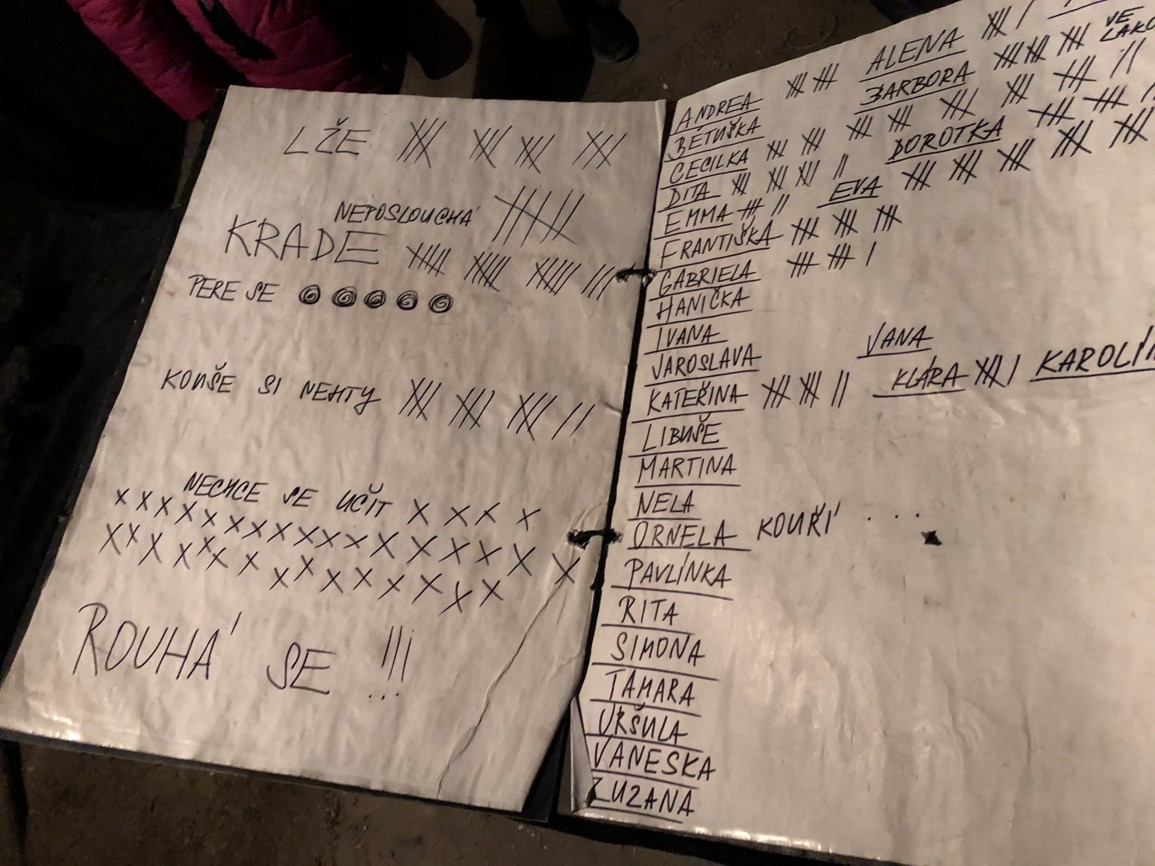 LŽE
NEPOSLOUCHÁ
KRADE
PERE SE
KOUŠE SI NEHTY
NECHCE SE UČIT X X X X
X X X X X X X X X X X X X X X X X X
X X X X X X X X X X X X X X X X
ROUHÁ SE !!!
ANDREA ALENA VE
BĚTUŠKA BARBORA
CECILKA
DITA DOROTKA
EMMA EVA
FRANTIŠKA
GABRIELA
HANIČKA
IVANA VANA
JAROSLAVA
KATEŘINA KLÁRA
LIBUŠE
MARTINA
NELA
ORNELA KOUŘÍ ...
PAVLÍNKA
RITA
SIMONA
TAMARA
URŠULA
VANESKA
ZUZANA